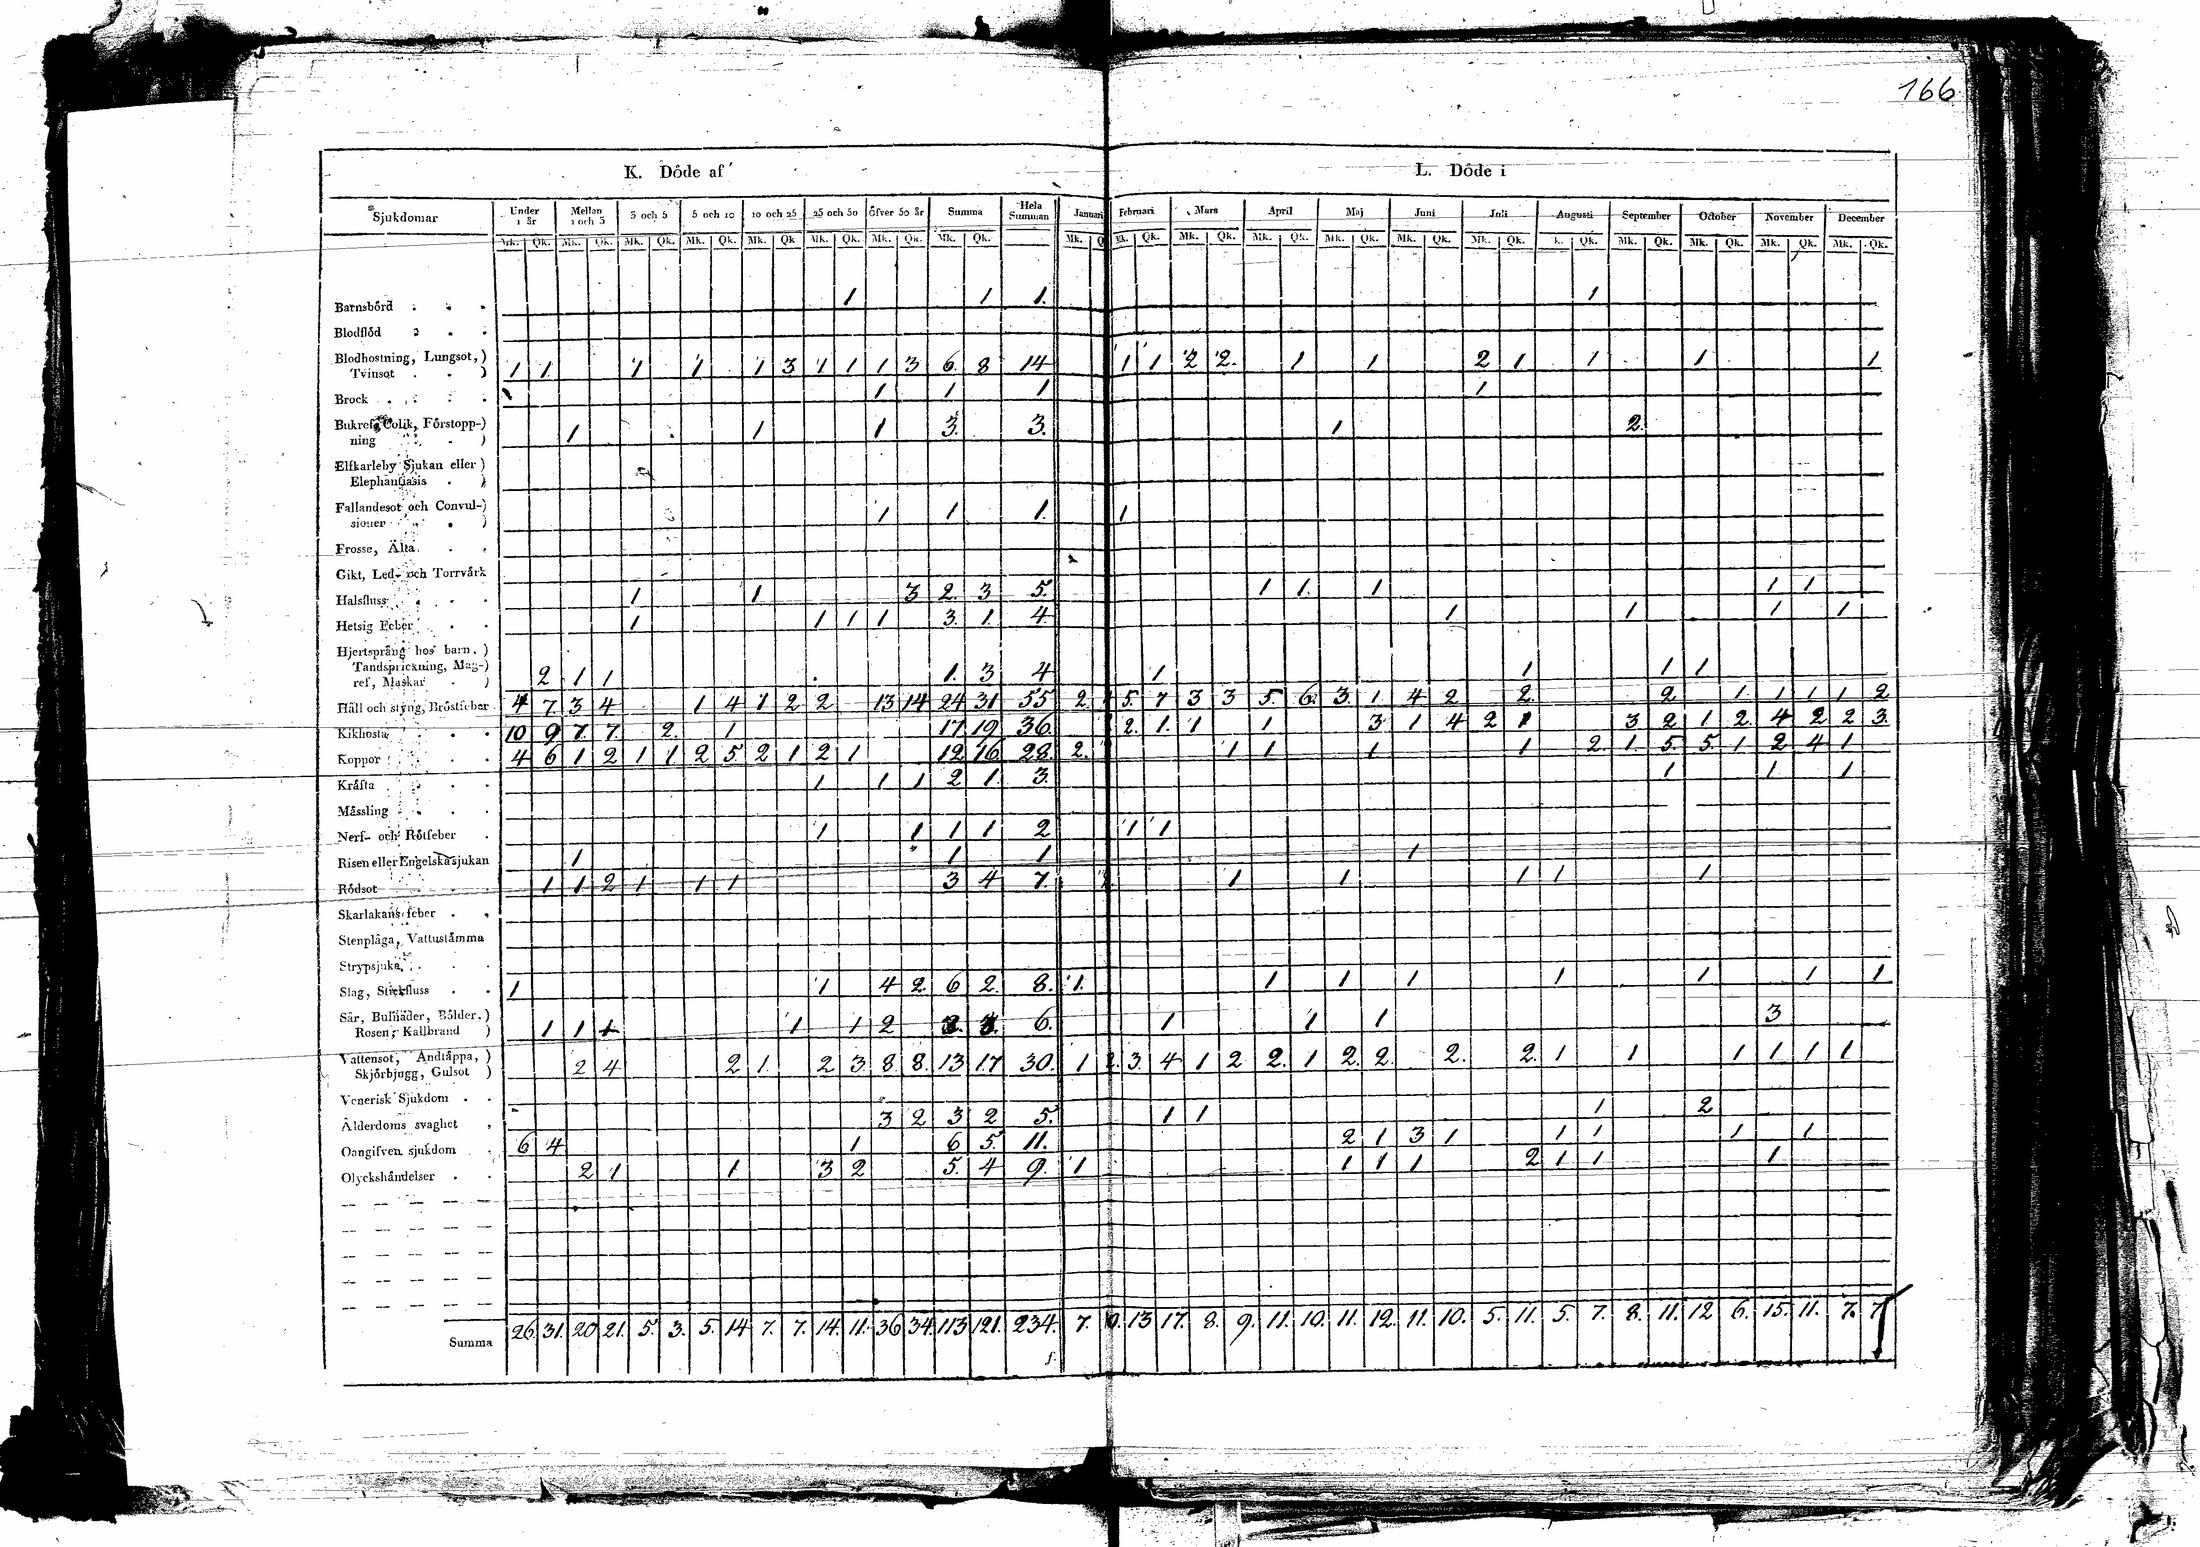 166
K. Dôde af
L. Dôde i
Sjukdomar Under 1 år Mellan 1 och 3 3 och 5 5 och 10 10 och 25 25 och 50 Öfver 50 år Summa Hela Summan Januari Februari Mars April Maj Juni Juli Augusti September October November December
Mk. Qk. Mk. Qk. Mk. Qk. Mk. Qk. Mk. Qk Mk. Qk. Mk. Qk. Mk. Qk. Mk. Mk. Qk. Mk. Qk. Mk. Qk. Mk. Qk. Mk. Qk. Mk. Qk. Qk. Mk. Qk. Mk. Qk. Mk. Qk. Mk. Qk.
Barnsbörd 1 1 1. 1
Blodflöd
Blodhostning, Lungsot,)
Tvinsot ) 1 1 1 1 1 3 1 1 1 3 6. 8 14 1 1 2 2. 1 1 2 1 1 1 1
Brock 1 1 1 1
Bukref, Colik, Förstopp-)
ning ) 1 1 1 3. 3. 1 2.
Elfkarleby Sjukan eller )
Elephantiasis )
Fallandesot och Convul-)
sioner ) 1 1 1. 1
Frosse, Älta
Gikt, Led- och Torrvärk
Halsfluss 1 1 3 2. 3 5. 1 1. 1 1 1
Hetsig Feber 1 1 1 1 3. 1. 4 1 1 1 1
Hjertsprång hos barn,)
Tandsprickning, Mag-)
ref, Maskar ) 2 1 1 1. 3 4 1 1 1 1
Håll och styng, Bröstfeber 4 7 3 4 1 4 1 2 2 13 14 24 31 55 2. 5. 7 3 3 5. 6. 3. 1 4 2 2. 2 1. 1 1 1 2
Kikhosta 10 9 7. 7. 2. 1 17 19 36. 2. 1. 1 1 3 1 4 2 1 3 2 1 2. 4 2 2 3.
Koppor 4 6 1 2 1 1 2 5 2 1 2 1 12 16 28. 2. 1 1 1 1 2. 1. 5. 5. 1 2 4 1
Kräfta 1 1 1 2 1. 3. 1 1 1
Mässling
Nerf- och Rötfeber 1 1 1 1 2 1 1
Risen eller Engelska sjukan 1 1 1 1
Rödsot 1 1 2 1 1 1 3 4 7. 1 1 1 1 1
Skarlakans feber
Stenplåga, Vattustämma
Strypsjuka
Slag, Stickfluss 1 1 4 2 6 2. 8. 1. 1 1 1 1 1 1 1
Sår, Bulnäder, Bölder,)
Rosen, Kallbrand ) 1 1 1 1 1 2 6. 1 1 1 3
Vattensot, Andtäppa, )
Skjörbjugg, Gulsot ) 2 4 2 1. 2 3. 8. 8. 13 17 30. 1 2. 3. 4 1 2 2. 1 2. 2. 2. 2. 1 1 1 1 1 1
Venerisk Sjukdom
Ålderdoms svaghet 3 2 3 2 5. 1 1 1 2
Oangifven sjukdom 6 4 1 6 5 11. 2 1 3 1 1 1 1 1
Olyckshändelser 2 1 1 3 2 5. 4 9. 1 1 1 1 2 1 1 1
Summa 26. 31. 20 21. 5. 3. 5. 14 7. 7. 14. 11. 36 34. 113 121. 234. 7. 13 17. 8. 9. 11. 10. 11. 12. 11. 10. 5. 11. 5. 7. 8. 11. 12 6. 15. 11. 7. 7